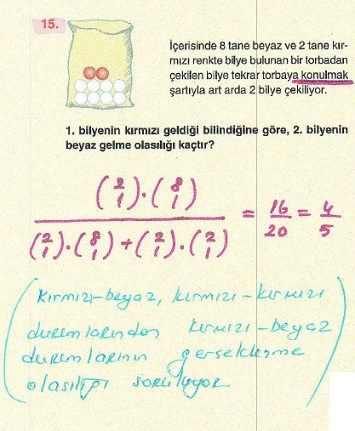 15.
İçerisinde 8 tane beyaz ve 2 tane kır-
mızı renkte bilye bulunan bir torbadan
çekilen bilye tekrar torbaya konulmak
şartıyla art arda 2 bilye çekiliyor.
1. bilyenin kırmızi geldiği bilindiğine göre, 2. bilyenin
beyaz gelme olasılığı kaçtır?
(2 1).(8 1)
/ (2 1).(8 1)+(2 1).(2 1) = 16/20 = 4/5
(kırmızı-beyaz, kırmızı-kırmızı
durumlarından kırmızı-beyaz
durumlarının gerçekleşme
olasılığı soruluyor)